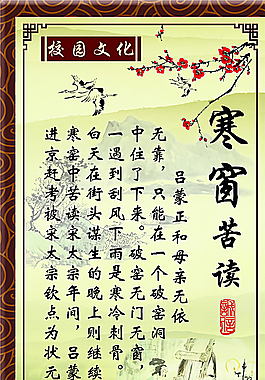 校园文化
寒窗苦读
吕蒙正和母亲无依
无靠，只能在一个破窑洞
中住了下来。破窑无门无窗，
一遇到刮风下雨是寒冷刺骨。
白天在街头谋生的晚上则继续
寒窑中苦读宋太宗年间，吕蒙
进京赶考被宋太宗钦点为状元